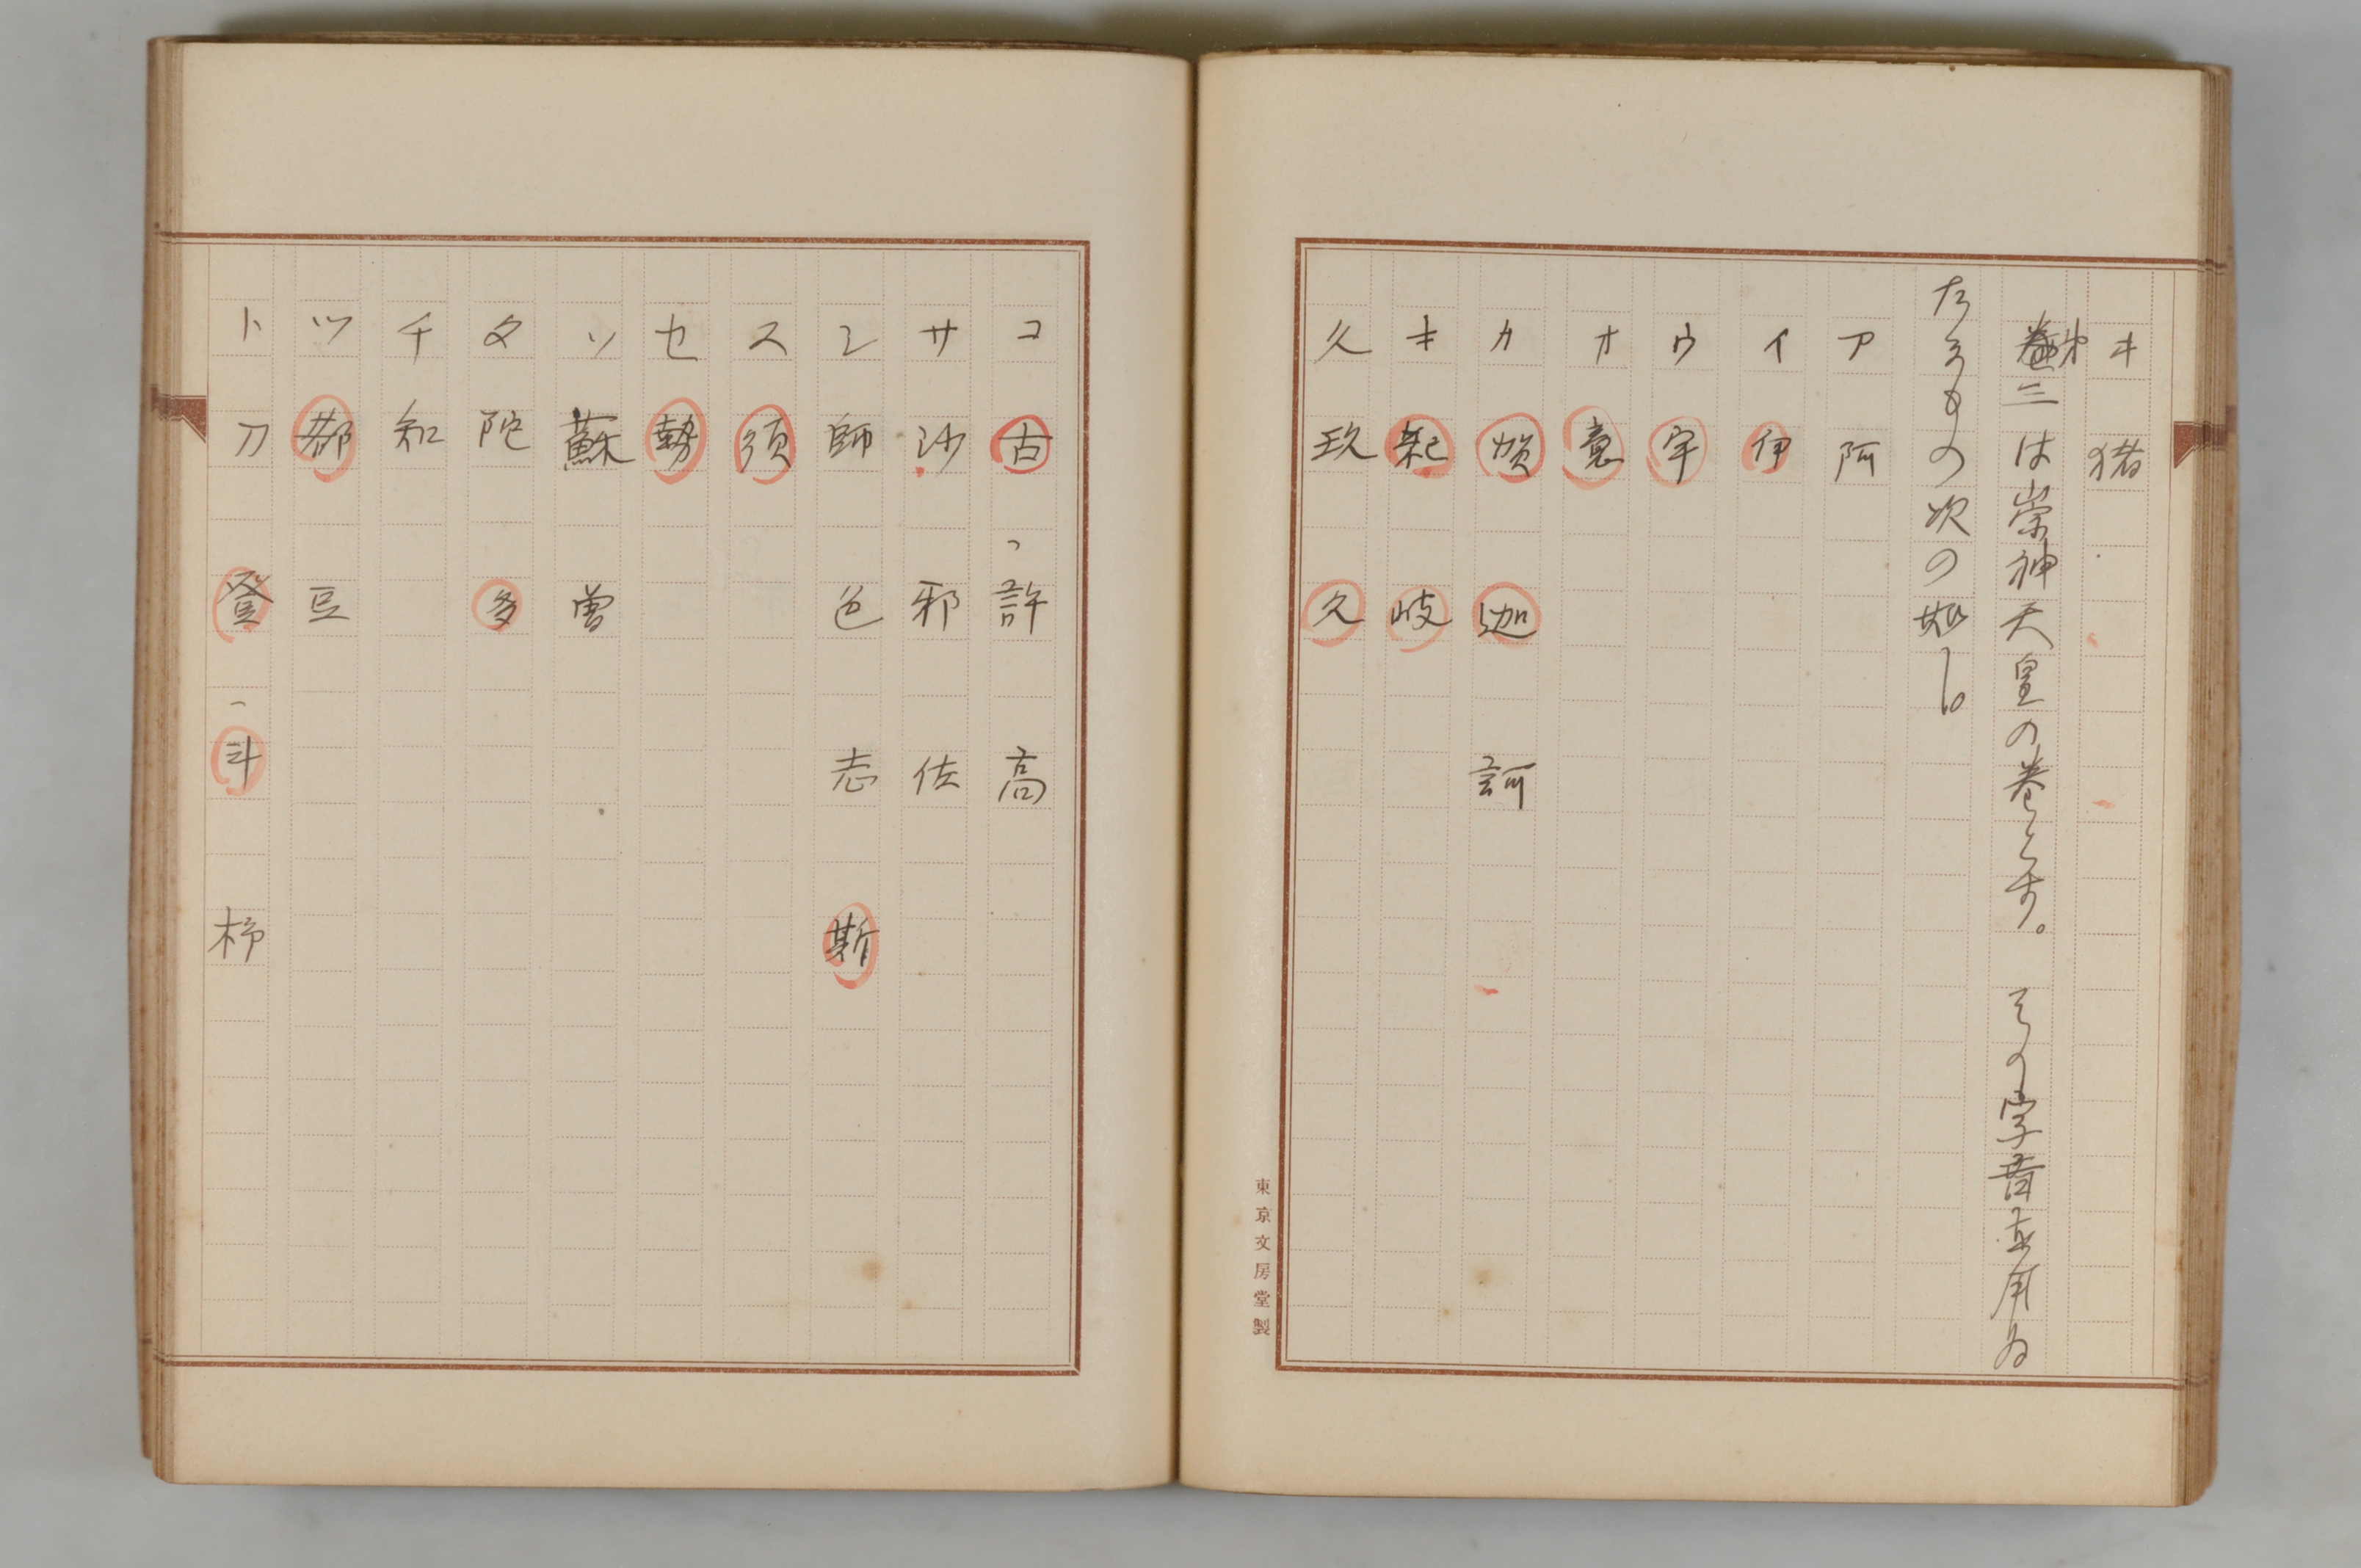 ヰ 猪
第三は崇神天皇の巻とす。 その字音を用ゐ
たるものの次の如し。
ア 阿
イ 伊
ウ 宇
オ 意
カ 賀 迦 訶
キ 紀 岐
久 玖 久
東京文房堂製
コ 古 、許 高
サ 沙 邪 佐
シ 師 色 志 斯
ス 須
セ 勢
ソ 蘇 曽
タ 陀 多
チ 知
ツ 都 豆
ト 刀 登 、斗 杼